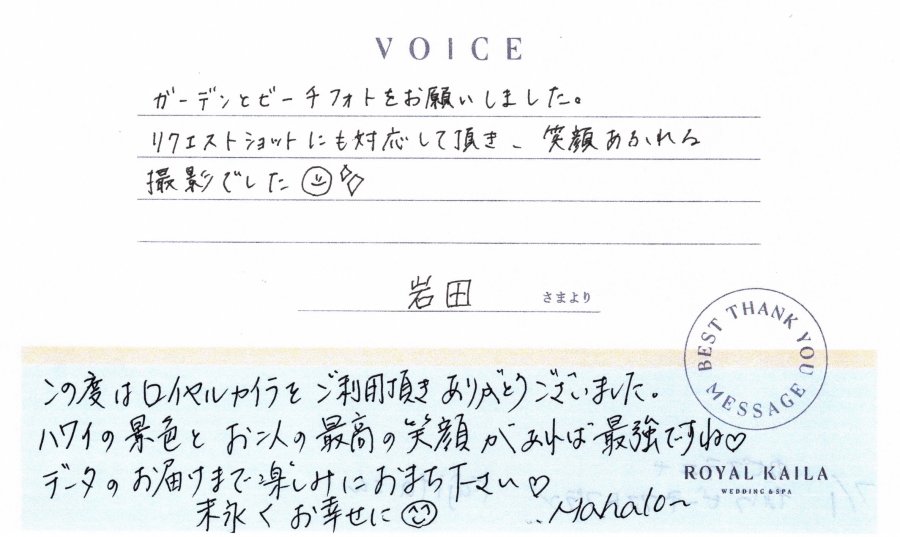 VOICE
ガーデンとビーチフォトをお願いしました。
リクエストショットにも対応して頂き、笑顔あふれる
撮影でした
岩田 さまより
BEST THANK YOU MESSAGE
この度はロイヤルカイラをご利用頂きありがとうございました。
ハワイの景色とお二人の最高の笑顔があれば最強ですね♡
データのお届けまで楽しみにおまち下さい♡
ROYAL KAILA
WEDDING & SPA
末永くお幸せに
Mahalo~